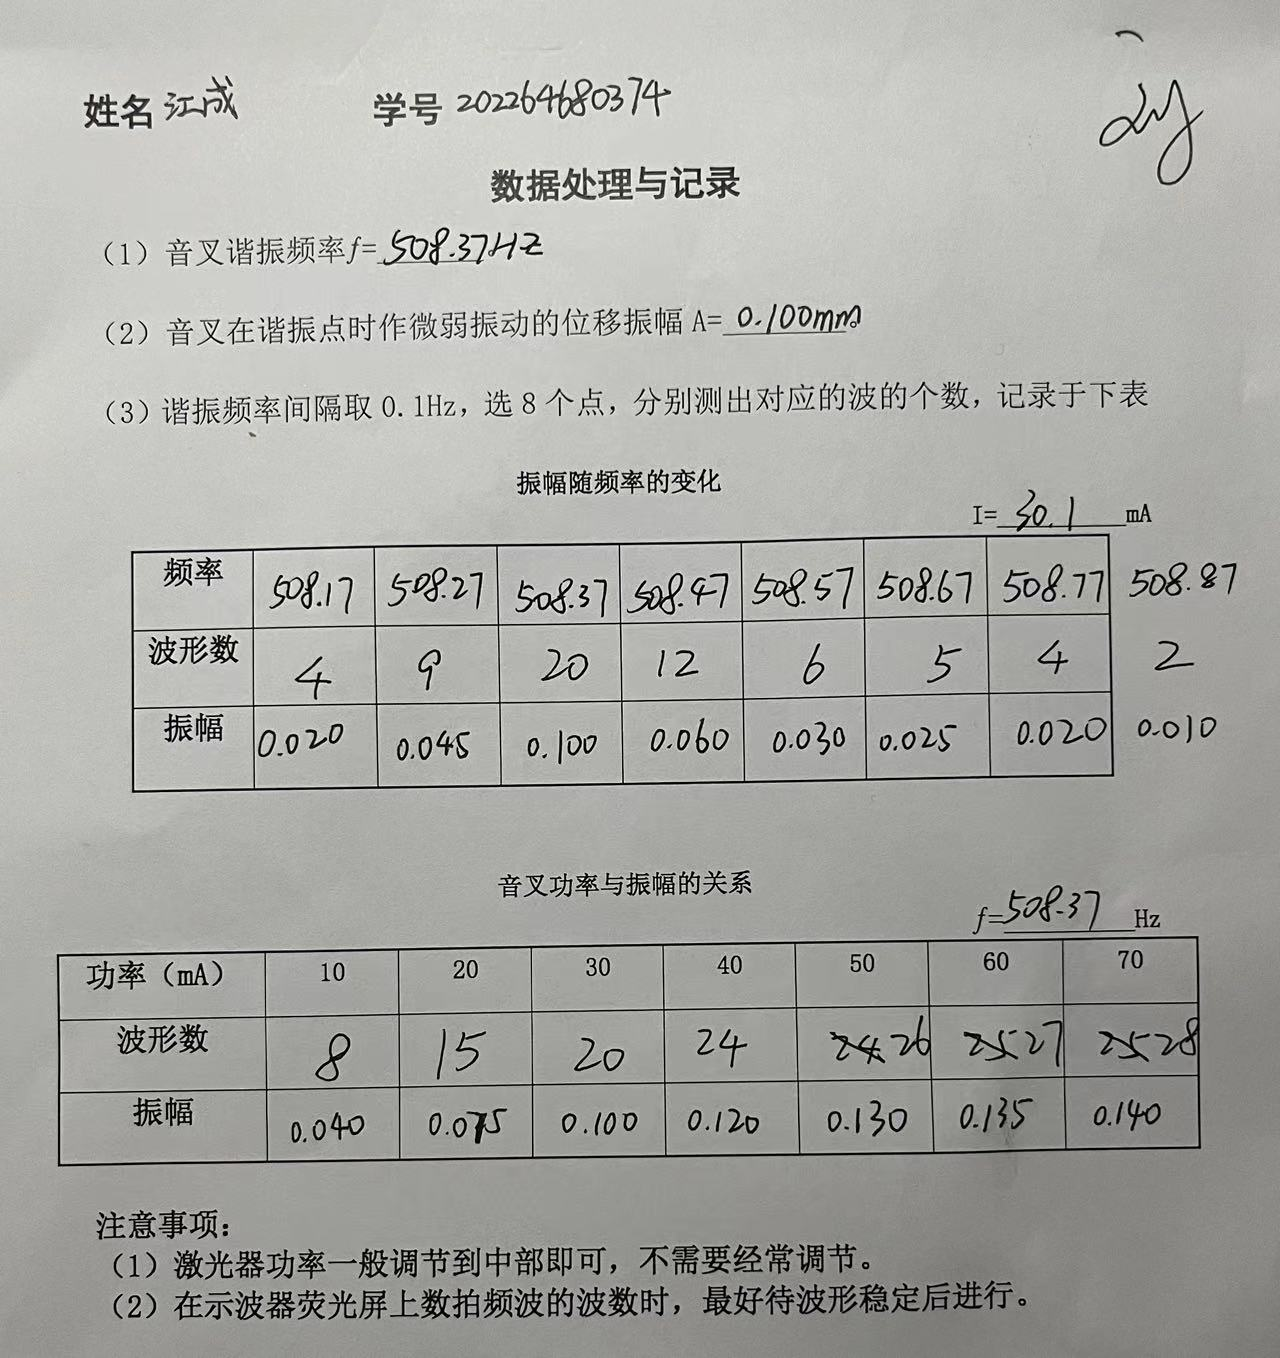 姓名 江成 学号 202264680374
数据处理与记录
（1）音叉谐振频率f= 508.37HZ
（2）音叉在谐振点时作微弱振动的位移振幅 A= 0.100mm
（3）谐振频率间隔取 0.1Hz，选 8 个点，分别测出对应的波的个数，记录于下表
振幅随频率的变化
I= 30.1 mA
频率 508.17 508.27 508.37 508.47 508.57 508.67 508.77 508.87
波形数 4 9 20 12 6 5 4 2
振幅 0.020 0.045 0.100 0.060 0.030 0.025 0.020 0.010
音叉功率与振幅的关系
f= 508.37 Hz
功率（mA） 10 20 30 40 50 60 70
波形数 8 15 20 24 24 26 25 27 25 28
振幅 0.040 0.075 0.100 0.120 0.130 0.135 0.140
注意事项：
（1）激光器功率一般调节到中部即可，不需要经常调节。
（2）在示波器荧光屏上数拍频波的波数时，最好待波形稳定后进行。